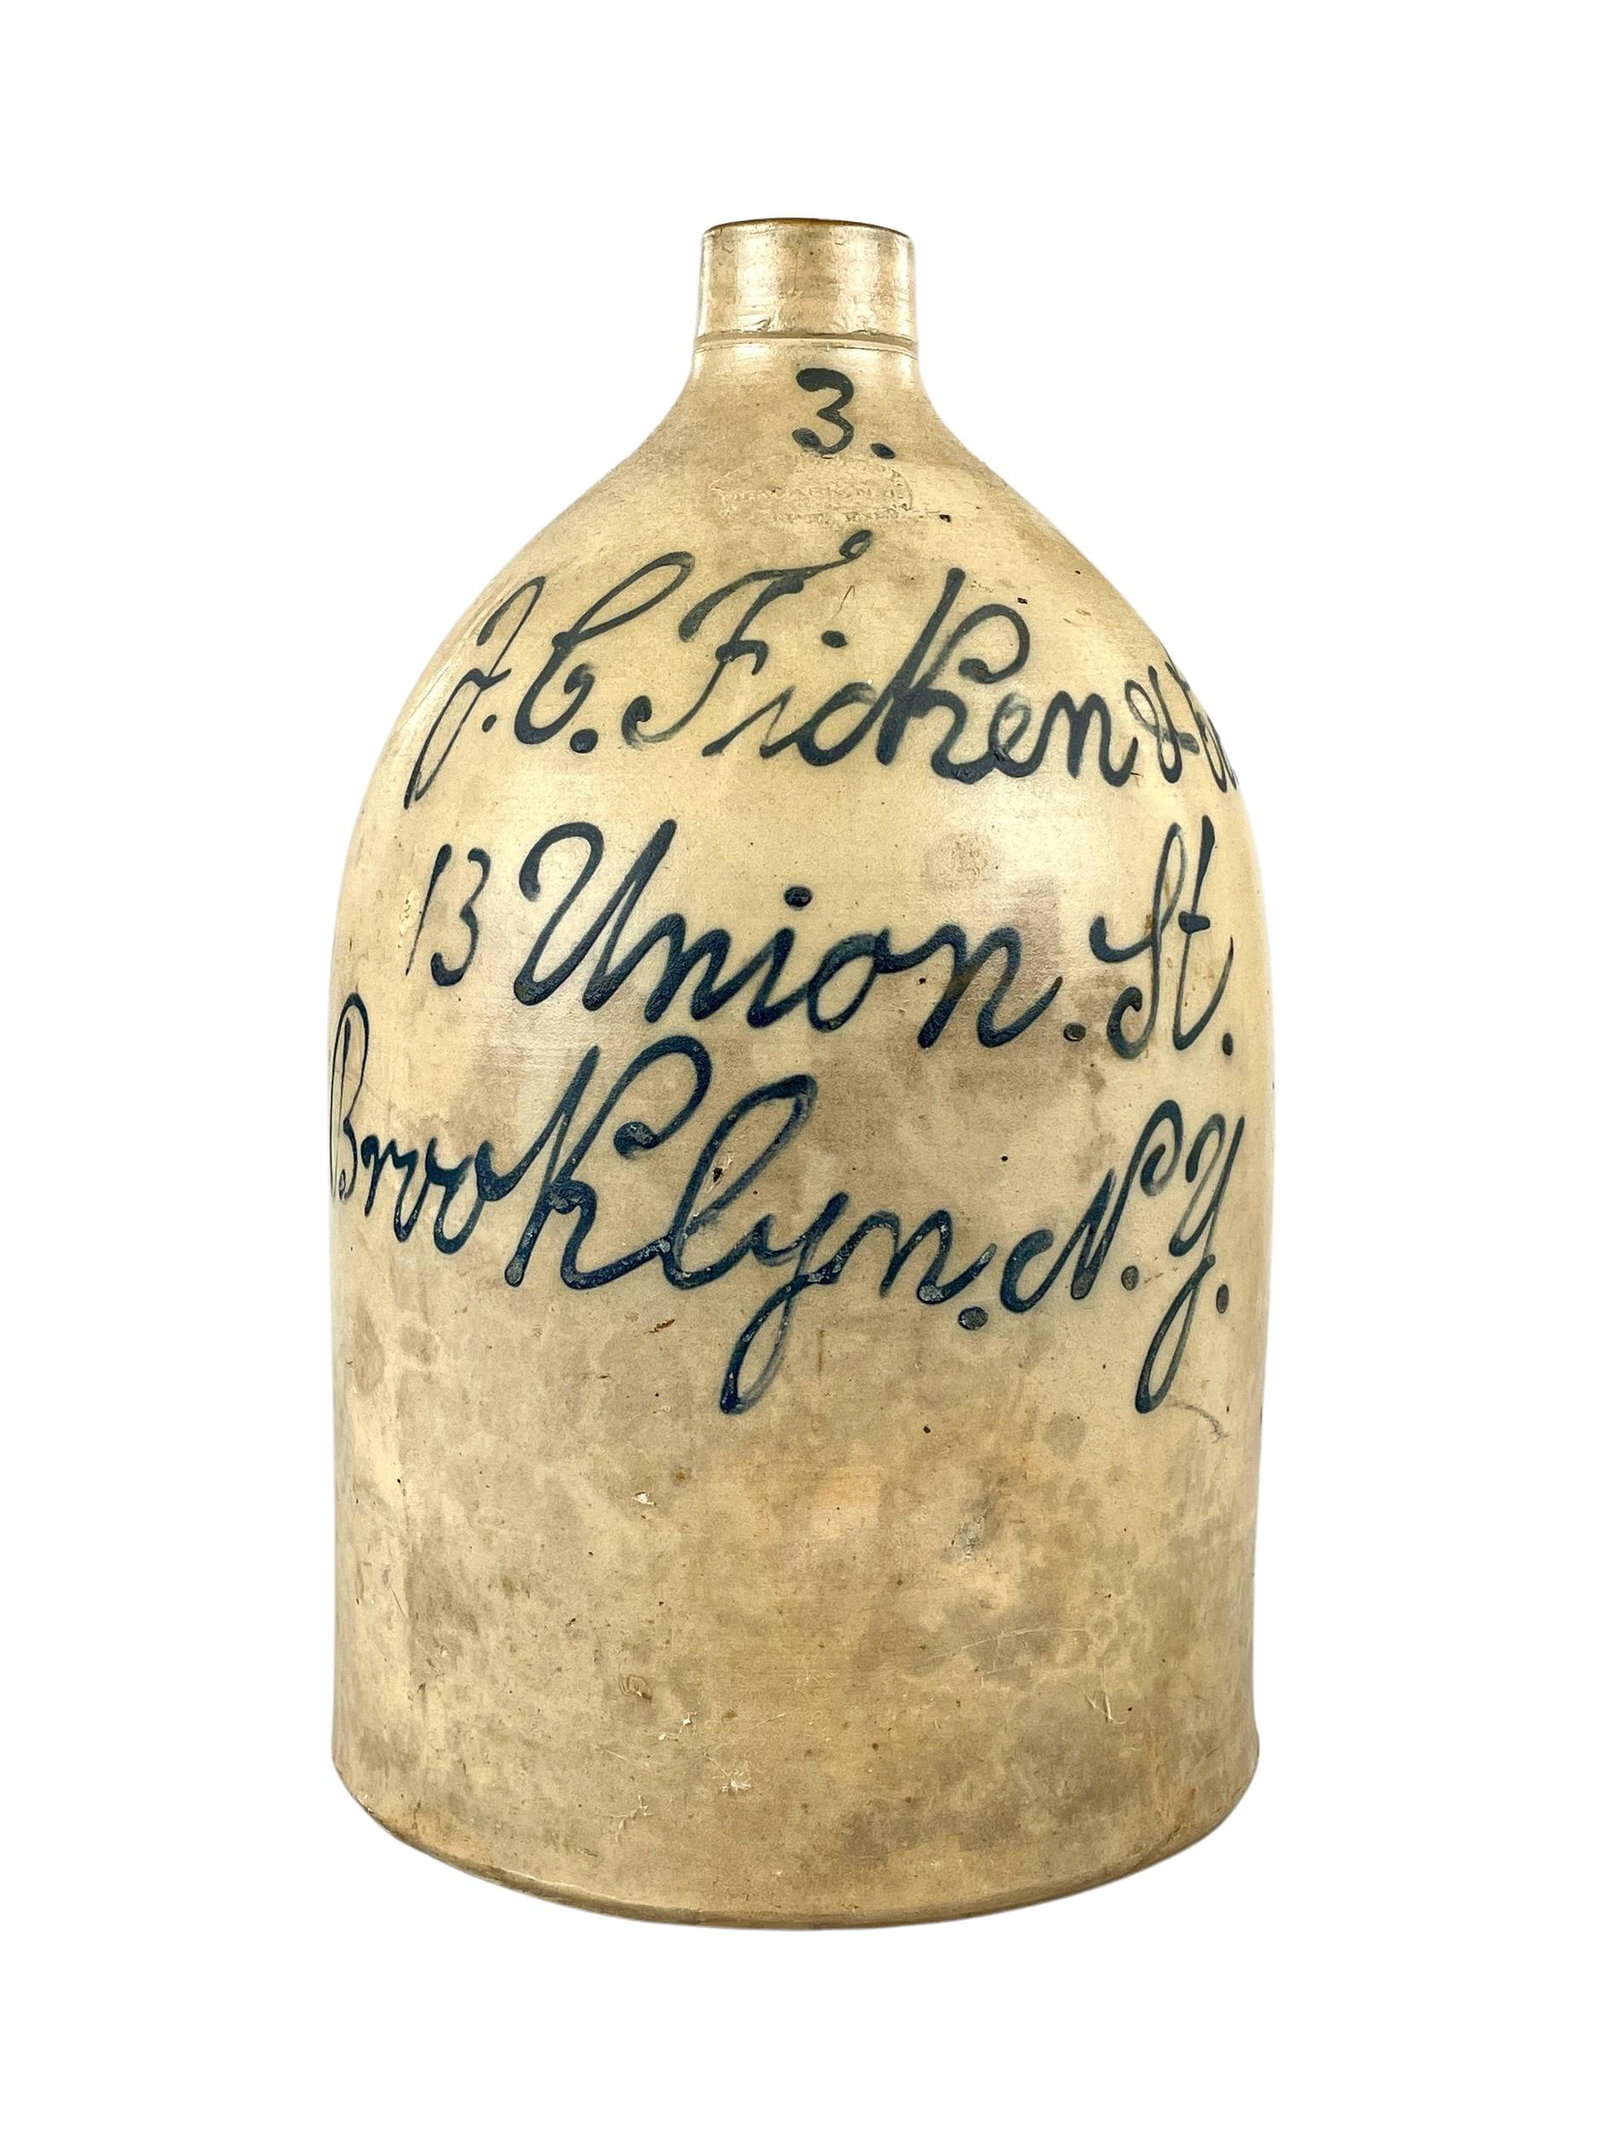 3.
J. C. Ficken &
13 Union. St.
Brooklyn. N. Y.